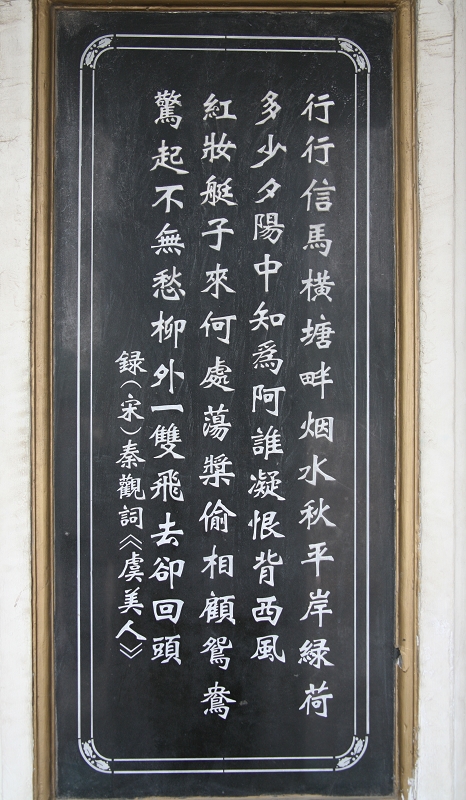 行行信馬横塘畔烟水秋平岸緑荷
多少夕陽中知爲阿誰凝恨背西風
紅妝艇子來何處蕩槳偷相顧鴛鴦
驚起不無愁柳外一雙飛去卻回頭
録（宋）秦觀詞《虞美人》